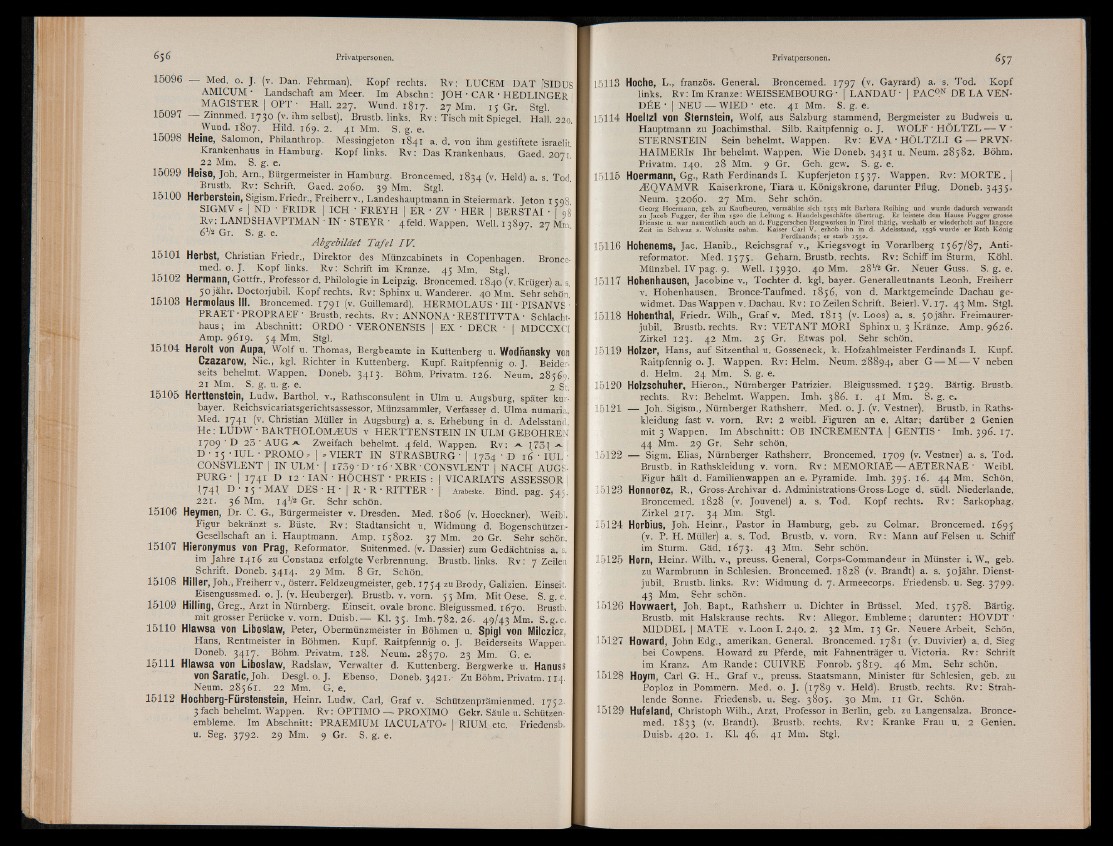 656 Privatpersonen.
15096 — Med. o. J. (v. Dan. Fehrman). Kopf rechts. Rv: LUCEM DAT SIDUS
AMICUM · Landschaft am Meer. Im Abschn: JOH · CAR · HEDLINGER
MAGISTER | OPT · Hall. 227. Wund. 1817. 27 Mm. 15 Gr. Stgl.
15097 — Zinnmed. 1730 (v. ihm selbst). Brustb. links. Rv: Tisch mit Spiegel. Hall. 220.
Wund. 1807. Hild. 169. 2. 41 Mm. S. g. e.
15098 Heine, Salomon, Philanthrop. Messingjeton 1841 a. d. von ihm gestiftete israelit.
Krankenhaus in Hamburg. Kopf links. Rv: Das Krankenhaus. Gaed. 2071.
22 Mm. S. g. e.
15099 Heise, Joh. Arn., Bürgermeister in Hamburg. Broncemed. 1834 (v. Held) a. s. Tod.
Brustb. Rv: Schrift. Gaed. 2060. 39 Mm. Stgl.
15100 Herberstein, Sigism. Friedr., Freiherr v., Landeshauptmann in Steiermark. Jeton 1598.
SIGMV | ND · FRIDR | ICH · FREYH | ER · ZV · HER | BERSTAI · | 98
Rv: LANDSHAVPTMAN · IN · STEYR · 4feld. Wappen. Well. 13897. 27 Mm.
6½ Gr. S. g. e.
Abgebildet Tafel IV.
15101 Herbst, Christian Friedr., Direktor des Münzcabinets in Copenhagen. Bronce-
med. o. J. Kopf links. Rv: Schrift im Kranze. 45 Mm. Stgl.
15102 Hermann, Gottfr., Professor d. Philologie in Leipzig. Broncemed. 1840 (v. Krüger) a. s.
50jähr. Doctorjubil. Kopf rechts. Rv: Sphinx u. Wanderer. 40 Mm. Sehr schön.
15103 Hermolaus III. Broncemed. 1791 (v. Guillemard). HERMOLAUS · III · PISANVS ·
PRAET · PROPRAEF · Brustb. rechts. Rv: ANNONA · RESTITVTA · Schlacht-
haus; im Abschnitt: ORDO · VERONENSIS | EX · DECR · | MDCCXCI
Amp. 9619. 54 Mm. Stgl.
15104 Herolt von Aupa, Wolf u. Thomas, Bergbeamte in Kuttenberg u. Wodňansky von
Czazarow, Nic., kgl. Richter in Kuttenberg. Kupf. Raitpfennig o. J. Beider-
seits behelmt. Wappen. Doneb. 3413. Böhm. Privatm. 126. Neum. 28569.
21 Mm. S. g. u. g. e. 2 St.
15105 Herttenstein, Ludw. Barthol. v., Rathsconsulent in Ulm u. Augsburg, später kur-
bayer. Reichsvicariatsgerichtsassessor, Münzsammler, Verfasser d. Ulma numaria.
Med. 1741 (v. Christian Müller in Augsburg) a. s. Erhebung in d. Adelsstand.
He: LUDW · BARTHOLOMÆUS v HERTTENSTEIN IN ULM GEBOHREN
1709 · D 25 · AUG Zweifach behelmt. 4feld. Wappen. Rv: 1731
D · 15 · IUL · PROMO | VIERT IN STRASBURG · | 1734 · D 16 · IUL ·
CONSVLENT | IN ULM · | 1739 · D · 16 · XBR · CONSVLENT | NACH AUGS-
PURG · | 1741 D 12 · IAN · HÖCHST · PREIS : | VICARIATS ASSESSOR |
1741 D · 15 · MAY DES · H · | R · R · RITTER · | Arabeske. Bind. pag. 545.
221. 36 Mm. 14½ Gr. Sehr schön.
15106 Heymen, Dr. C. G., Bürgermeister v. Dresden. Med. 1806 (v. Hoeckner). Weibl.
Figur bekränzt s. Büste. Rv: Stadtansicht u. Widmung d. Bogenschützen-
Gesellschaft an i. Hauptmann. Amp. 15802. 37 Mm. 20 Gr. Sehr schön.
15107 Hieronymus von Prag, Reformator. Suitenmed. (v. Dassier) zum Gedächtniss a. s.
im Jahre 1416 zu Constanz erfolgte Verbrennung. Brustb. links. Rv: 7 Zeilen
Schrift. Doneb. 3414. 29 Mm. 8 Gr. Schön.
15108 Hiller, Joh., Freiherr v., österr. Feldzeugmeister, geb. 1754 zu Brody, Galizien. Einseit.
Eisengussmed. o. J. (v. Heuberger). Brustb. v. vorn. 55 Mm. Mit Oese. S. g. e.
15109 Hilling, Greg., Arzt in Nürnberg. Einseit. ovale bronc. Bleigussmed. 1670. Brustb.
mit grosser Perücke v. vorn. Duisb. — Kl. 35. Imh. 782. 26. 49/43 Mm. S. g. e.
15110 Hlawsa von Liboslaw, Peter, Obermünzmeister in Böhmen u. Spigl von Milczicz,
Hans, Rentmeister in Böhmen. Kupf. Raitpfennig o. J. Beiderseits Wappen.
Doneb. 3417. Böhm. Privatm. 128. Neum. 28570. 23 Mm. G. e.
15111 Hlawsa von Liboslaw, Radslaw, Verwalter d. Kuttenberg. Bergwerke u. Hanuss
von Saratic, Joh. Desgl. o. J. Ebenso. Doneb. 3421. Zu Böhm. Privatm. 114.
Neum. 28561. 22 Mm. G. e.
15112 Hochberg-Fürstenstein, Heinr. Ludw. Carl, Graf v. Schützenprämienmed. 1752.
3fach behelmt. Wappen. Rv: OPTIMO — PROXIMO Gekr. Säule u. Schützen-
embleme. Im Abschnitt: PRAEMIUM IACULATO | RIUM etc. Friedensb.
u. Seg. 3792. 29 Mm. 9 Gr. S. g. e.
Privatpersonen. 657
15113 Hoche, L., französ. General. Broncemed. 1797 (v. Gayrard) a. s. Tod. Kopf
links. Rv: Im Kranze: WEISSEMBOURG · | LANDAU · | PACON DE LA VEN-
DÉE · | NEU — WIED · etc. 41 Mm. S. g. e.
15114 Hoeltzl von Sternstein, Wolf, aus Salzburg stammend, Bergmeister zu Budweis u.
Hauptmann zu Joachimsthal. Silb. Raitpfennig o. J. WOLF · HÖLTZL — V ·
STERNSTEIN Sein behelmt. Wappen. Rv: EVA · HÖLTZLI G — PRVN-
HAIMERIN Ihr behelmt. Wappen. Wie Doneb. 3431 u. Neum. 28582. Böhm.
Privatm. 140. 28 Mm. 9 Gr. Geh. gew. S. g. e.
15115 Hoermann, Gg., Rath Ferdinands I. Kupferjeton 1537. Wappen. Rv: MORTE. |
ÆQVAMVR Kaiserkrone, Tiara u. Königskrone, darunter Pflug. Doneb. 3435.
Neum. 32060. 27 Mm. Sehr schön.
Georg Hoermann, geb. zu Kaufbeuren, vermählte sich 1523 mit Barbara Reihing und wurde dadurch verwandt
zu Jacob Fugger, der ihm 1520 die Leitung s. Handelsgeschäfte übertrug. Er leistete dem Hause Fugger grosse
Dienste u. war namentlich auch an d. Fuggerschen Bergwerken in Tirol thätig, weshalb er wiederholt auf längere
Zeit in Schwaz s. Wohnsitz nahm. Kaiser Carl V. erhob ihn in d. Adelsstand, 1536 wurde er Rath König
Ferdinands; er starb 1552.
15116 Hohenems, Jac. Hanib., Reichsgraf v., Kriegsvogt in Vorarlberg 1567/87, Anti-
reformator. Med. 1575. Geharn. Brustb. rechts. Rv: Schiff im Sturm. Köhl.
Münzbel. IV pag. 9. Well. 13930. 40 Mm. 28½ Gr. Neuer Guss. S. g. e.
15117 Hohenhausen, Jacobine v., Tochter d. kgl. bayer. Generallieutnants Leonh. Freiherr
v. Hohenhausen. Bronce-Taufmed. 1856, von d. Marktgemeinde Dachau ge-
widmet. Das Wappen v. Dachau. Rv: 10 Zeilen Schrift. Beierl. V. 17. 43 Mm. Stgl.
15118 Hohenthal, Friedr. Wilh., Graf v. Med. 1813 (v. Loos) a. s. 50jähr. Freimaurer-
jubil. Brustb. rechts. Rv: VETANT MORI Sphinx u. 3 Kränze. Amp. 9626.
Zirkel 123. 42 Mm. 25 Gr. Etwas pol. Sehr schön.
15119 Holzer, Hans, auf Sitzenthal u. Gosseneck, k. Hofzahlmeister Ferdinands I. Kupf.
Raitpfennig o. J. Wappen. Rv: Helm. Neum. 28894, aber G — M — V neben
d. Helm. 24 Mm. S. g. e.
15120 Holzschuher, Hieron., Nürnberger Patrizier. Bleigussmed. 1529. Bärtig. Brustb.
rechts. Rv: Behelmt. Wappen. Imh. 386. 1. 41 Mm. S. g. e.
15121 — Joh. Sigism., Nürnberger Rathsherr. Med. o. J. (v. Vestner). Brustb. in Raths-
kleidung fast v. vorn. Rv: 2 weibl. Figuren an e. Altar; darüber 2 Genien
mit 3 Wappen. Im Abschnitt: OB INCREMENTA | GENTIS · Imh. 396. 17.
44 Mm. 29 Gr. Sehr schön.
15122 — Sigm. Elias, Nürnberger Rathsherr. Broncemed. 1709 (v. Vestner) a. s. Tod.
Brustb. in Rathskleidung v. vorn. Rv: MEMORIAE — AETERNAE · Weibl.
Figur hält d. Familienwappen an e. Pyramide. Imh. 395. 16. 44 Mm. Schön.
15123 Honnorez, R., Gross-Archivar d. Administrations-Gross-Loge d. südl. Niederlande.
Broncemed. 1828 (v. Jouvenel) a. s. Tod. Kopf rechts. Rv: Sarkophag.
Zirkel 217. 34 Mm. Stgl.
15124 Horbius, Joh. Heinr., Pastor in Hamburg, geb. zu Colmar. Broncemed. 1695
(v. P. H. Müller) a. s. Tod. Brustb. v. vorn. Rv: Mann auf Felsen u. Schiff
im Sturm. Gäd. 1673. 43 Mm. Sehr schön.
15125 Horn, Heinr. Wilh. v., preuss. General, Corps-Commandeur in Münster i. W., geb.
zu Warmbrunn in Schlesien. Broncemed. 1828 (v. Brandt) a. s. 50jähr. Dienst-
jubil. Brustb. links. Rv: Widmung d. 7. Armeecorps. Friedensb. u. Seg. 3799.
43 Mm. Sehr schön.
15126 Hovwaert, Joh. Bapt., Rathsherr u. Dichter in Brüssel. Med. 1578. Bärtig.
Brustb. mit Halskrause rechts. Rv: Allegor. Embleme; darunter: HOVDT ·
MIDDEL | MATE v. Loon I. 240. 2. 32 Mm. 13 Gr. Neuere Arbeit. Schön.
15127 Howard, John Edg., amerikan. General. Broncemed. 1781 (v. Duvivier) a. d. Sieg
bei Cowpens. Howard zu Pferde, mit Fahnenträger u. Victoria. Rv: Schrift
im Kranz. Am Rande: CUIVRE Fonrob. 5819. 46 Mm. Sehr schön.
15128 Hoym, Carl G. H., Graf v., preuss. Staatsmann, Minister für Schlesien, geb. zu
Poploz in Pommern. Med. o. J. (1789 v. Held). Brustb. rechts. Rv: Strah-
lende Sonne. Friedensb. u. Seg. 3805. 30 Mm. 11 Gr. Schön.
15129 Hufeland, Christoph Wilh., Arzt, Professor in Berlin, geb. zu Langensalza. Bronce-
med. 1833 (v. Brandt). Brustb. rechts. Rv: Kranke Frau u. 2 Genien.
Duisb. 420. 1. Kl. 46. 41 Mm. Stgl.